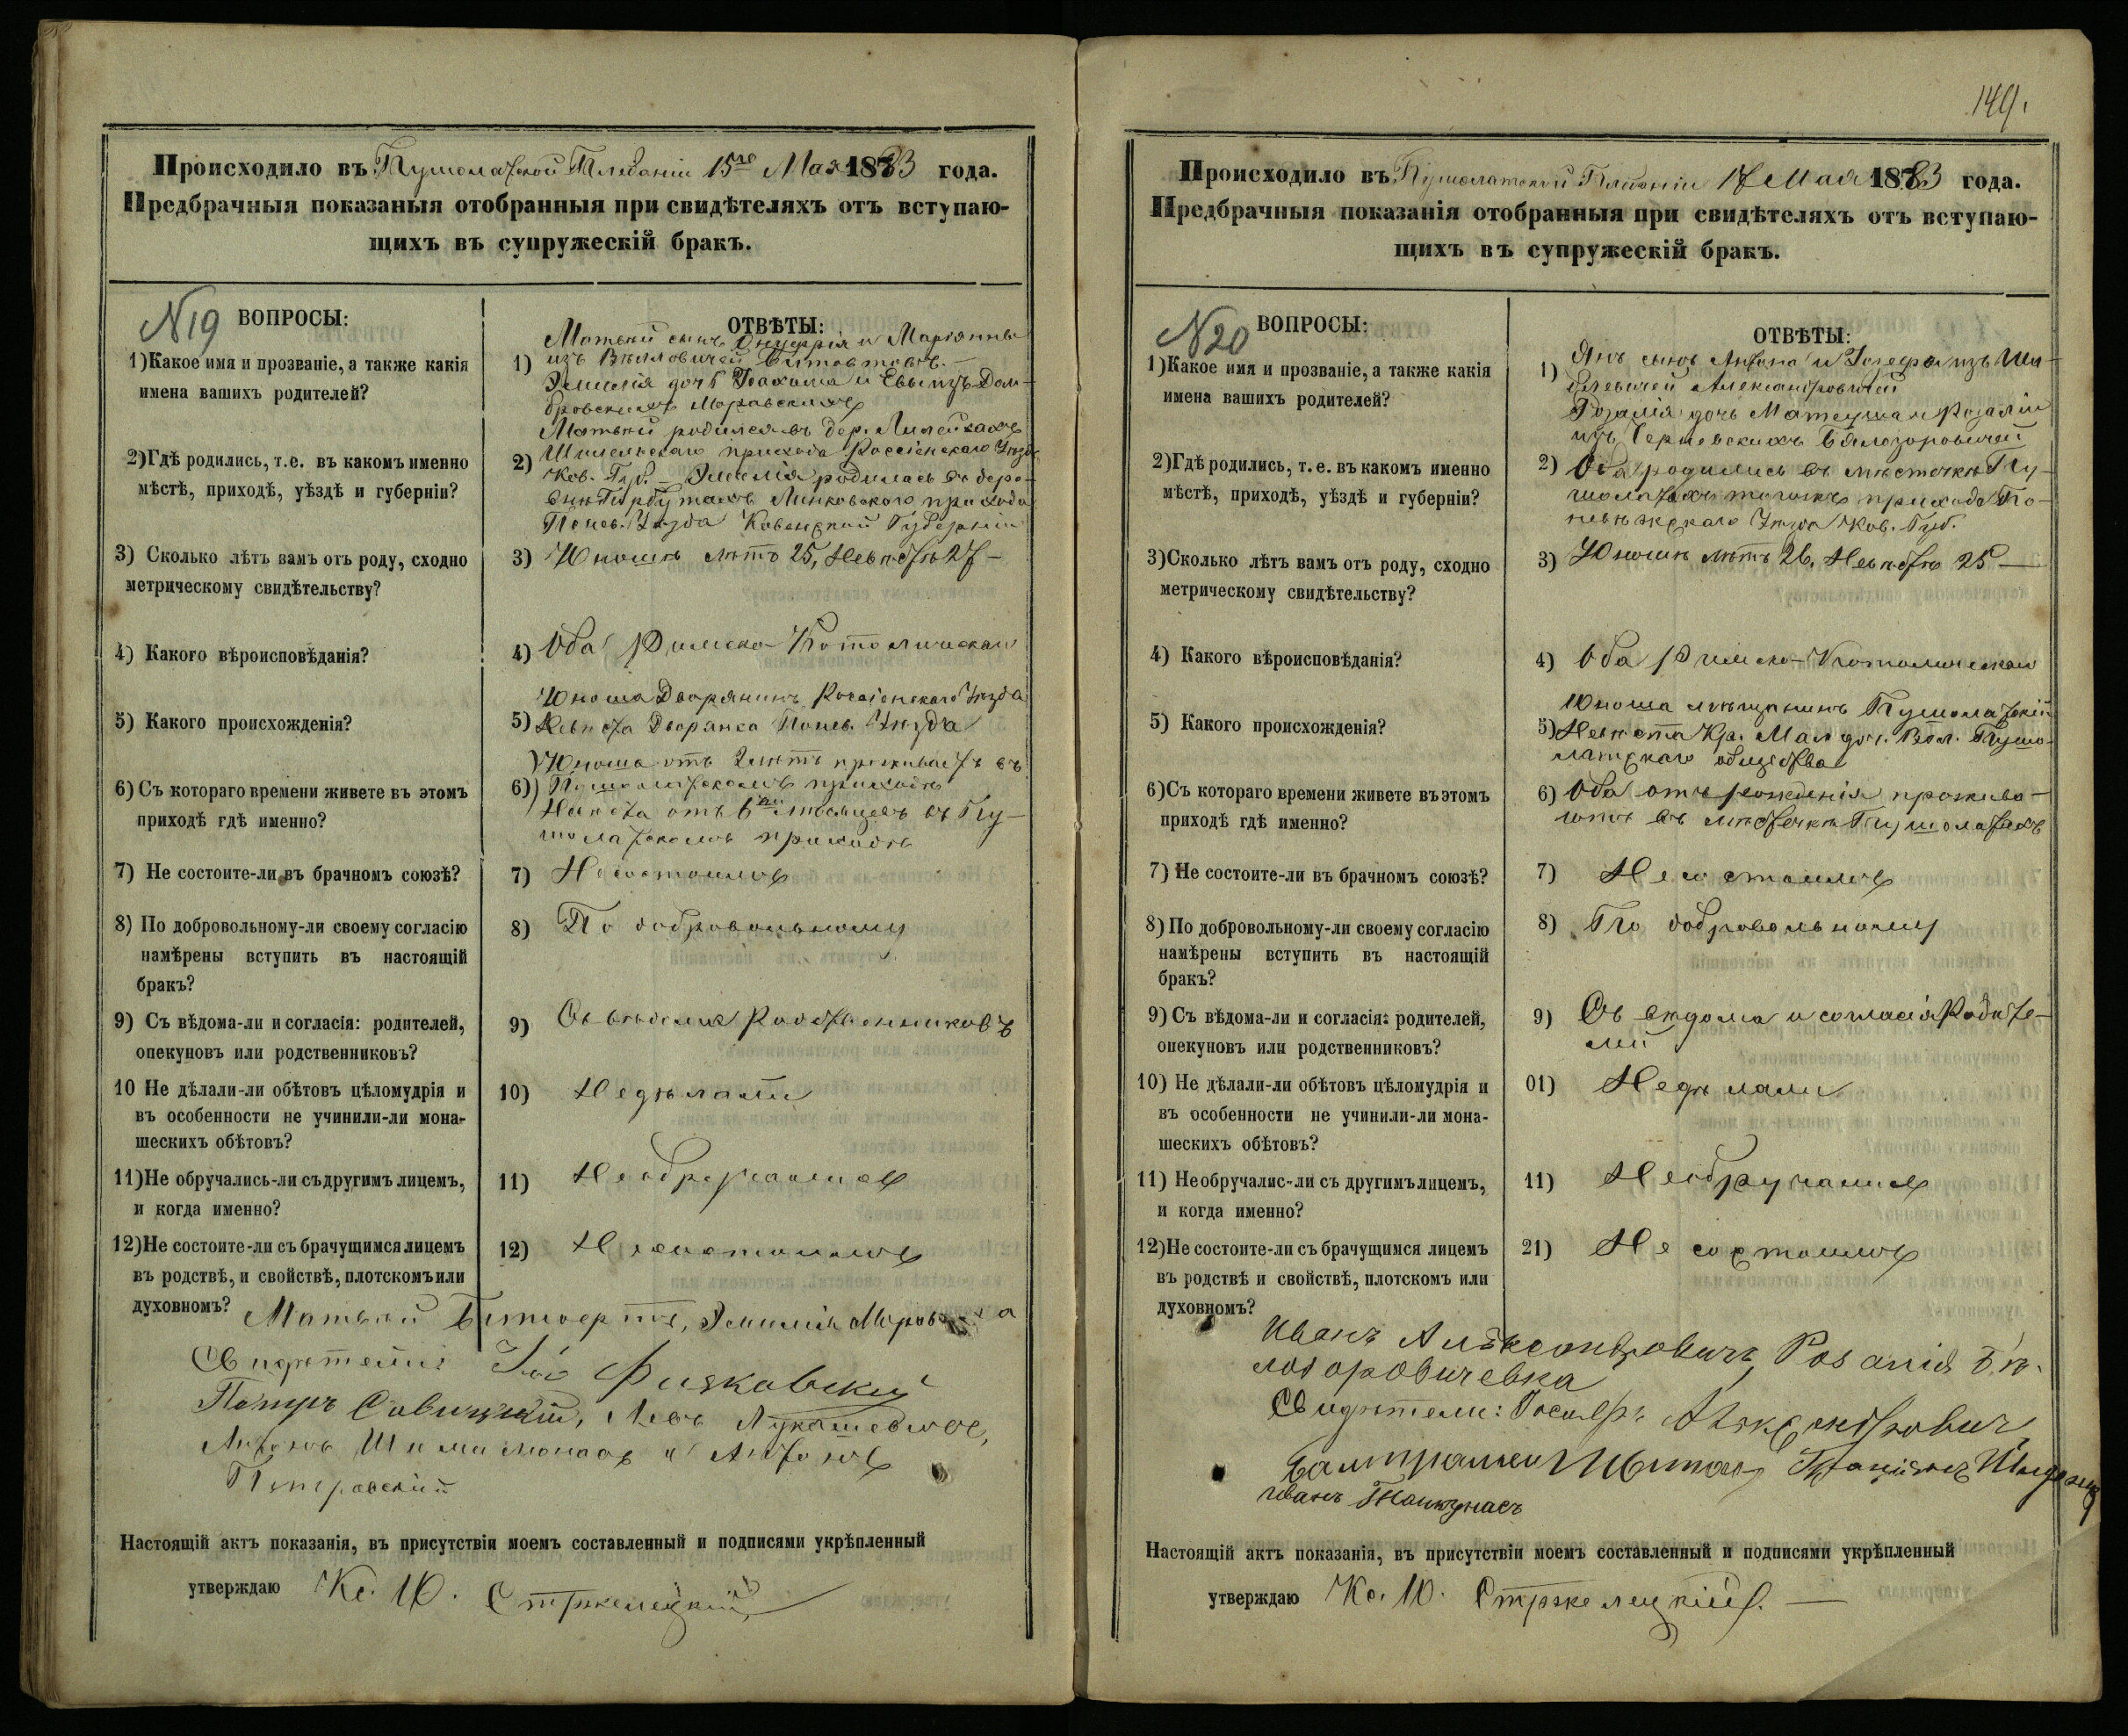 Происходило въ Пушолатской Плебаніи 15го Мая 1883 года.
Предбрачныя показаныя отобранныя при свидѣтеляхъ отъ вступаю-
щихъ въ супружескій бракъ.
N19 ВОПРОСЫ:
ОТВѢТЫ:
1) Какое имя и прозваніе, а также какія
имена вашихъ родителей?
1) Матвѣй сынъ Онуфрія и Маріянны
изъ
Эмилія дочь Іоахима и Евы изъ Дом-
бровскихъ Моравскихъ
2) Гдѣ родились, т.е. въ какомъ именно
мѣстѣ, приходѣ, уѣздѣ и губерніи?
2) Матвѣй родился въ дер.
прихода Россіенскаго Уѣзда
Ков. Губ. – Эмилія родилась въ дере-
внѣ Линковскаго прихода
Понев. Уѣзда Ковенской Губерніи
3) Сколько лѣтъ вамъ отъ роду, сходно
метрическому свидѣтельству?
3) Юношѣ лѣтъ 25, Невѣстѣ 27 –
4) Какого вѣроисповѣданія?
4) Оба Римско-Католическаго
5) Какого происхожденія?
5) Юноша Дворянинъ Россіенскаго Уѣзда
Невѣста Дворянка Понев. Уѣзда
6) Съ котораго времени живете въ этомъ
приходѣ гдѣ именно?
6) Юноша отъ 2 лѣтъ проживаетъ въ
Пушолатскомъ приходѣ
Невѣста отъ 6ти мѣсяцевъ въ Пу-
шолатскомъ приходѣ
7) Не состоите-ли въ брачномъ союзѣ?
7) Несостоимъ
8) По добровольному-ли своему согласію
намѣрены вступить въ настоящій
бракъ?
8) По добровольному
9) Съ вѣдома-ли и согласія: родителей,
опекуновъ или родственниковъ?
9) Съ вѣдома Родственниковъ
10 Не дѣлали-ли обѣтовъ цѣломудрія и
въ особенности не учинили-ли мона-
шескихъ обѣтовъ?
10) Недѣлали
11) Не обручались-ли съ другимъ лицемъ,
и когда именно?
11) Необручались
12) Не состоите-ли съ брачущимся лицемъ
въ родствѣ, и свойствѣ, плотскомъ или
духовномъ?
12) Несостоимъ
Матвѣй Эмилія
Свидѣтели:
Петръ Савицкій, Левъ Лукашевичъ,
Антонъ и Антонъ
Петровскій
Настоящій актъ показанія, въ присутствіи моемъ составленный и подписями укрѣпленный
утверждаю Кс. Ю. Стржелецкій
149.
Происходило въ Пушолатской Плебаніи 18 Мая 1883 года.
Предбрачныя показанія отобранныя при свидѣтеляхъ отъ вступаю-
щихъ въ супружескій бракъ.
N20 ВОПРОСЫ:
ОТВѢТЫ:
1) Какое имя и прозваніе, а также какія
имена вашихъ родителей?
1) Янъ сынъ Антона и Іозефы изъ
Александровичей
Розалія дочь Матеуша и Розаліи
изъ Бялозоровичей
2) Гдѣ родились, т. е. въ какомъ именно
мѣстѣ, приходѣ, уѣздѣ и губерніи?
2) Оба родились въ мѣстечкѣ Пу-
шолатахъ тогожъ прихода По-
невѣжскаго Уѣзда Ков. Губ.
3) Сколько лѣтъ вамъ отъ роду, сходно
метрическому свидѣтельству?
3) Юношѣ лѣтъ 26, Невѣстѣ 25 –
4) Какого вѣроисповѣданія?
4) Оба Римско-Католическаго
5) Какого происхожденія?
5) Юноша мѣщанинъ Пушолатскій
Невѣста Кр. Вол. Пушо-
латскаго общества
6) Съ котораго времени живете въ этомъ
приходѣ гдѣ именно?
6) Оба отъ рожденія прожива-
ютъ въ мѣстечкѣ Пушолатахъ
7) Не состоите-ли въ брачномъ союзѣ?
7) Не состоимъ
8) По добровольному-ли своему согласію
намѣрены вступить въ настоящій
бракъ?
8) По добровольному
9) Съ вѣдома-ли и согласія: родителей,
опекуновъ или родственниковъ?
9) Съ вѣдома и согласія Родите-
лей
10) Не дѣлали-ли обѣтовъ цѣломудрія и
въ особенности не учинили-ли мона-
шескихъ обѣтовъ?
01) Недѣлали
11) Необручалис-ли съ другимъ лицемъ,
и когда именно?
11) Необручались
12) Не состоите-ли съ брачущимся лицемъ
въ родствѣ и свойствѣ, плотскомъ или
духовномъ?
21) Не состоимъ
Иванъ Александровичъ, Розалія Бѣ-
лозоровичевна
Свидѣтели: Іосифъ Александровичъ
Иванъ
Настоящій актъ показанія, въ присутствіи моемъ составленный и подписями укрѣпленный
утверждаю Кс. Ю. Стржелецкій